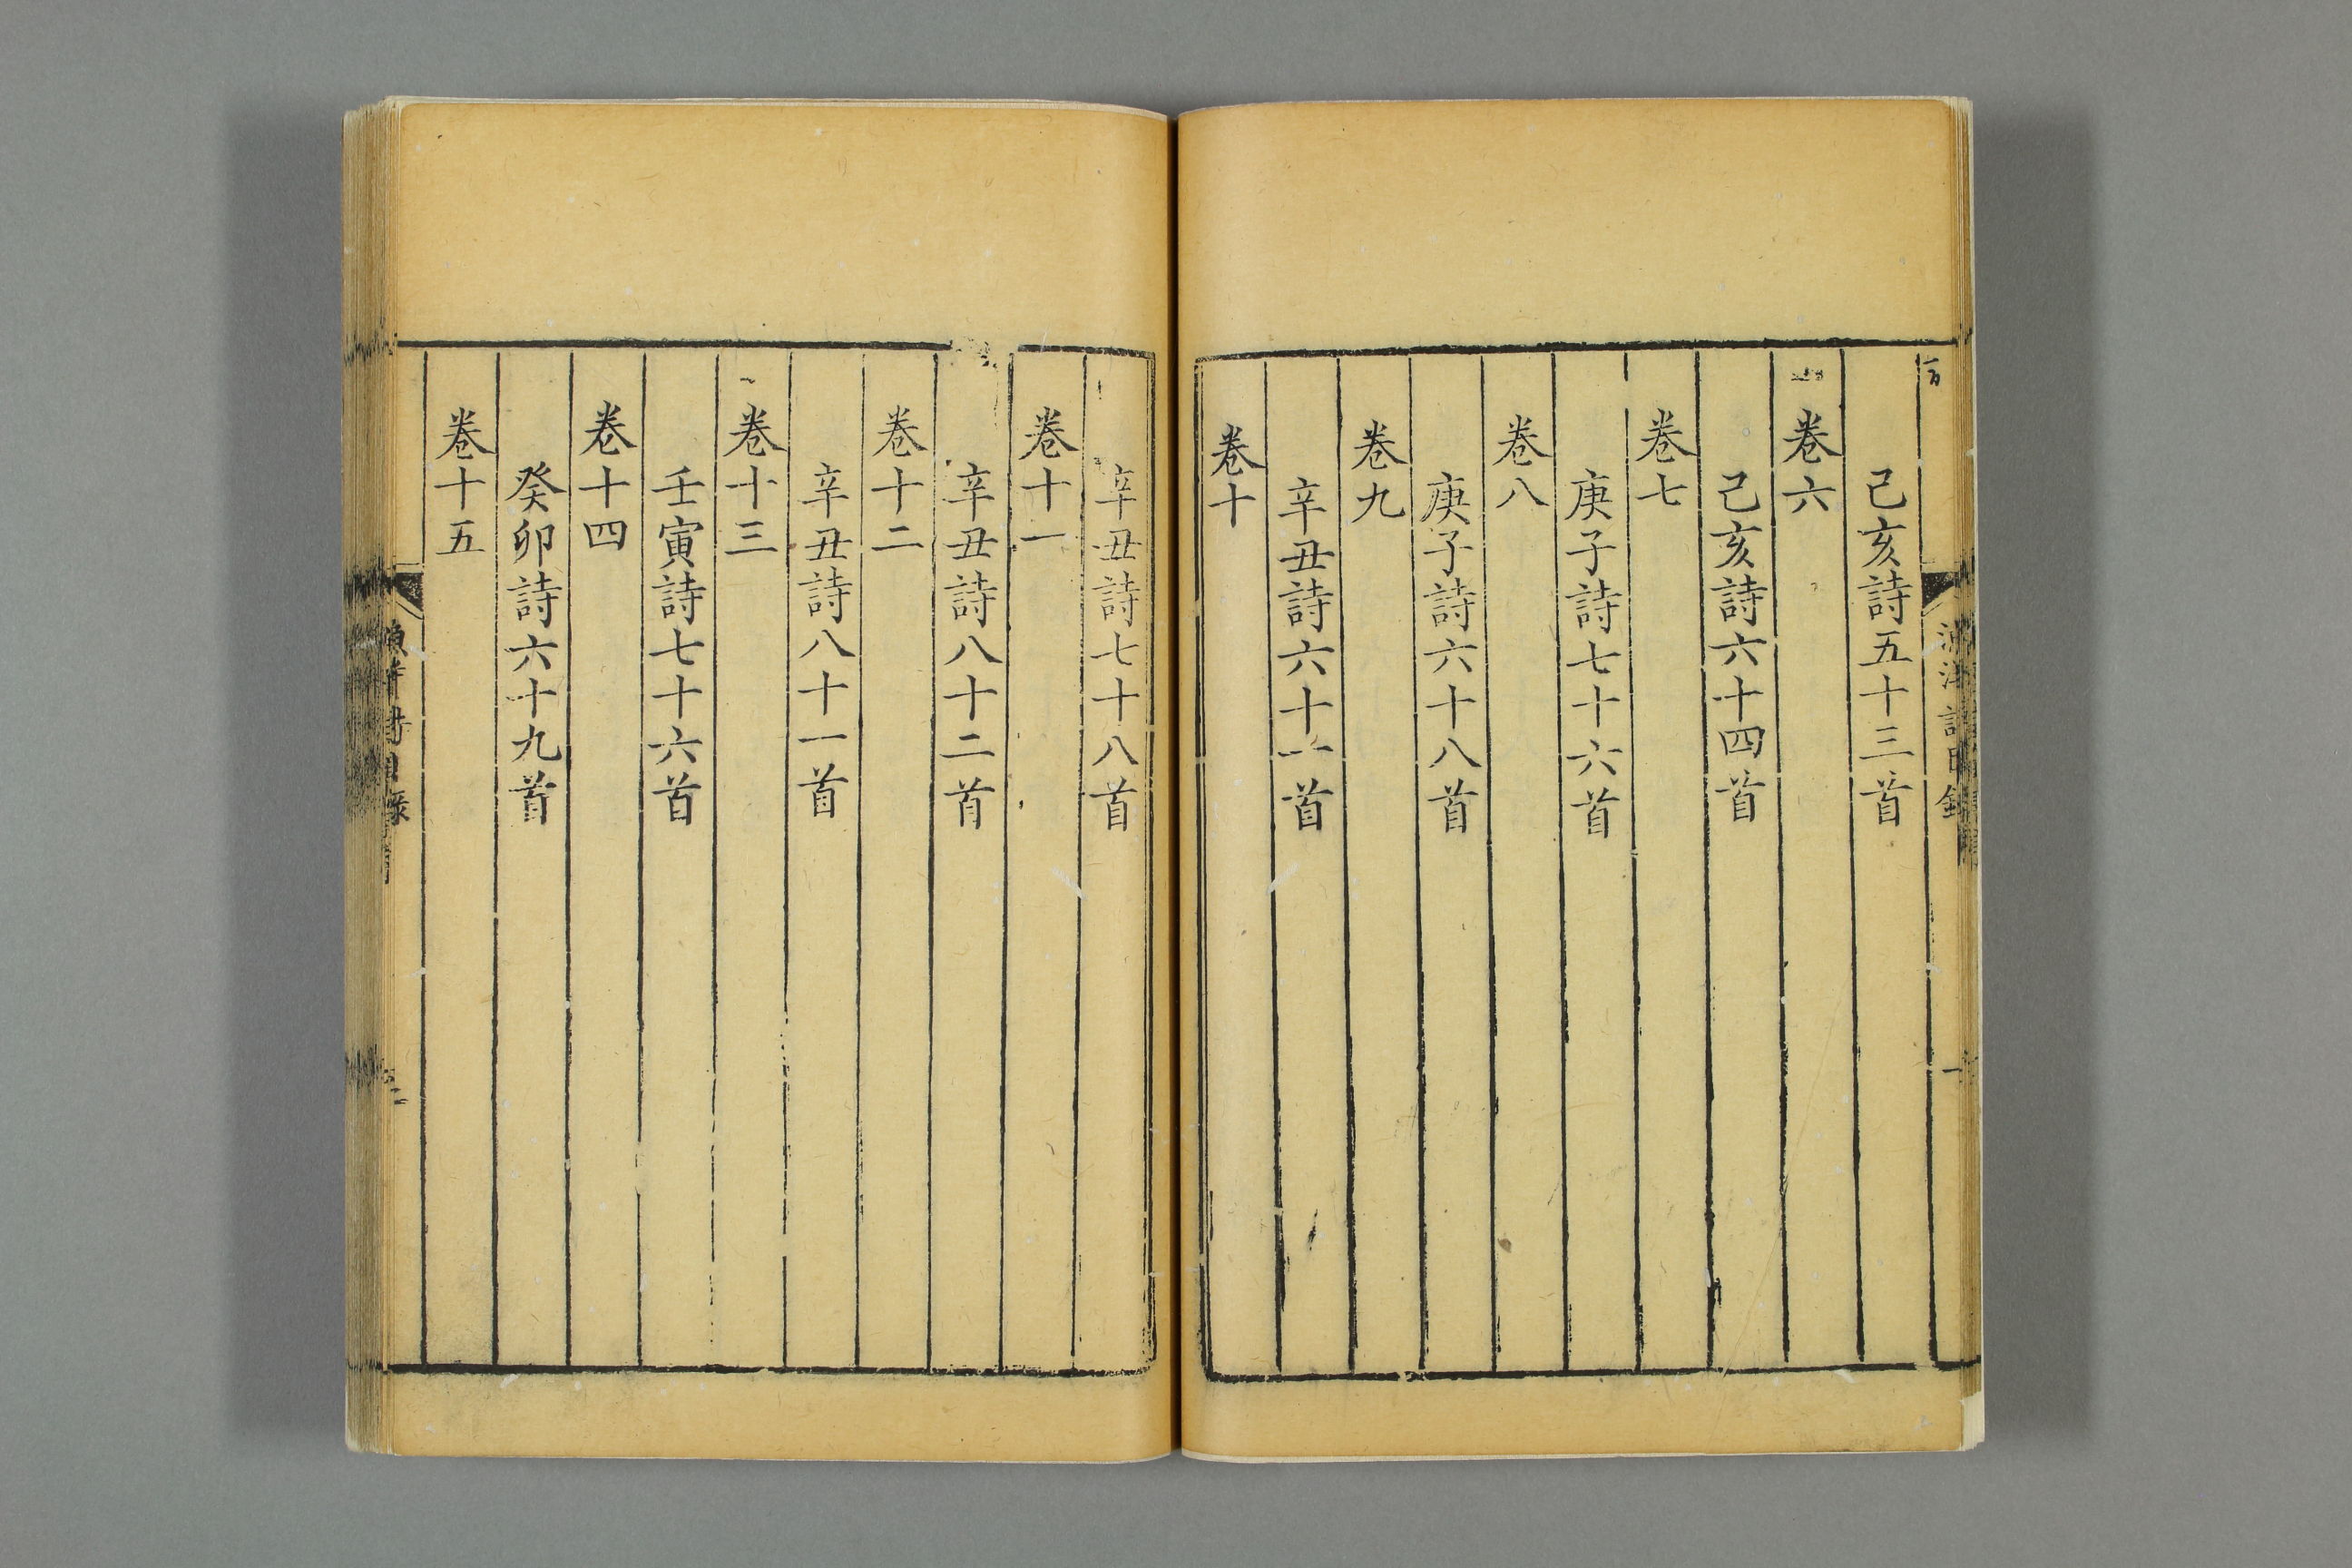 己亥詩五十三首
卷六
己亥詩六十四首
卷七
庚子詩七十六首
卷八
庚子詩六十八首
卷九
辛丑詩六十一首
卷十
辛丑詩七十八首
卷十一
辛丑詩八十二首
卷十二
辛丑詩八十一首
卷十三
壬寅詩七十六首
卷十四
癸卯詩六十九首
卷十五